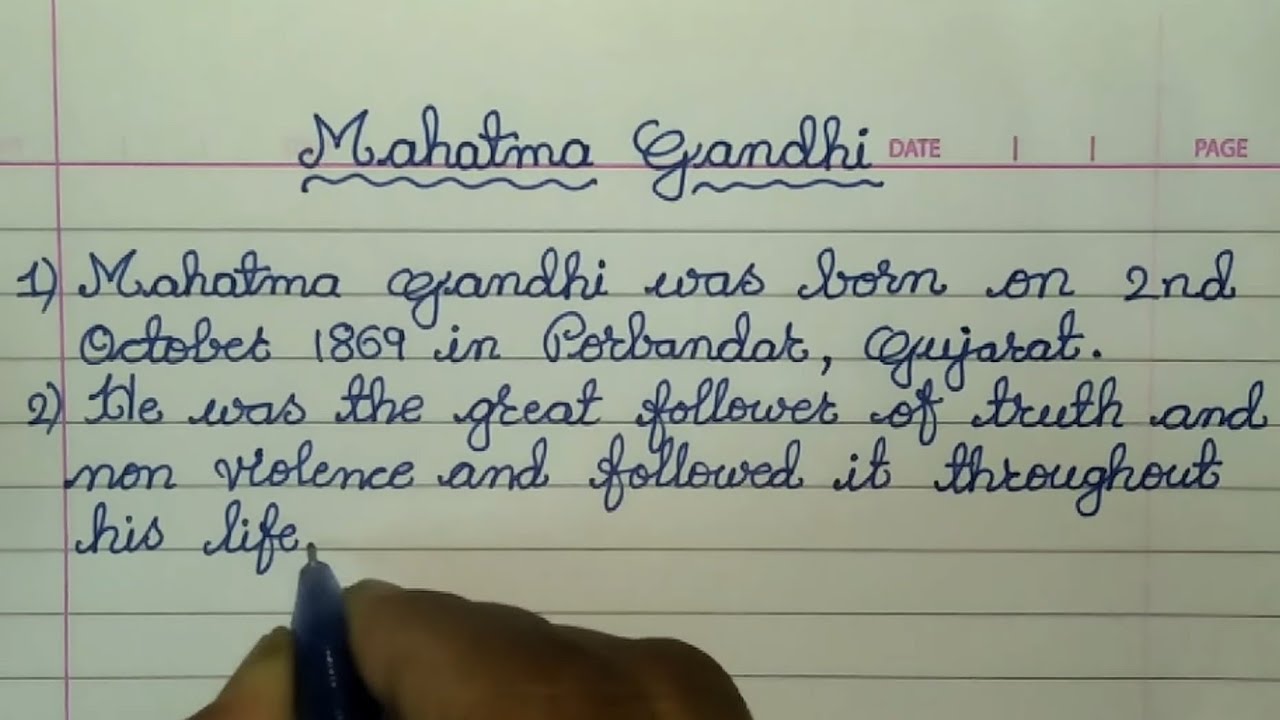 Mahatma Gandhi DATE | | PAGE
1) Mahatma Gandhi was born on 2nd
October 1869 in Porbandar, Gujarat.
2) He was the great follower of truth and
non violence and followed it throughout
his life.